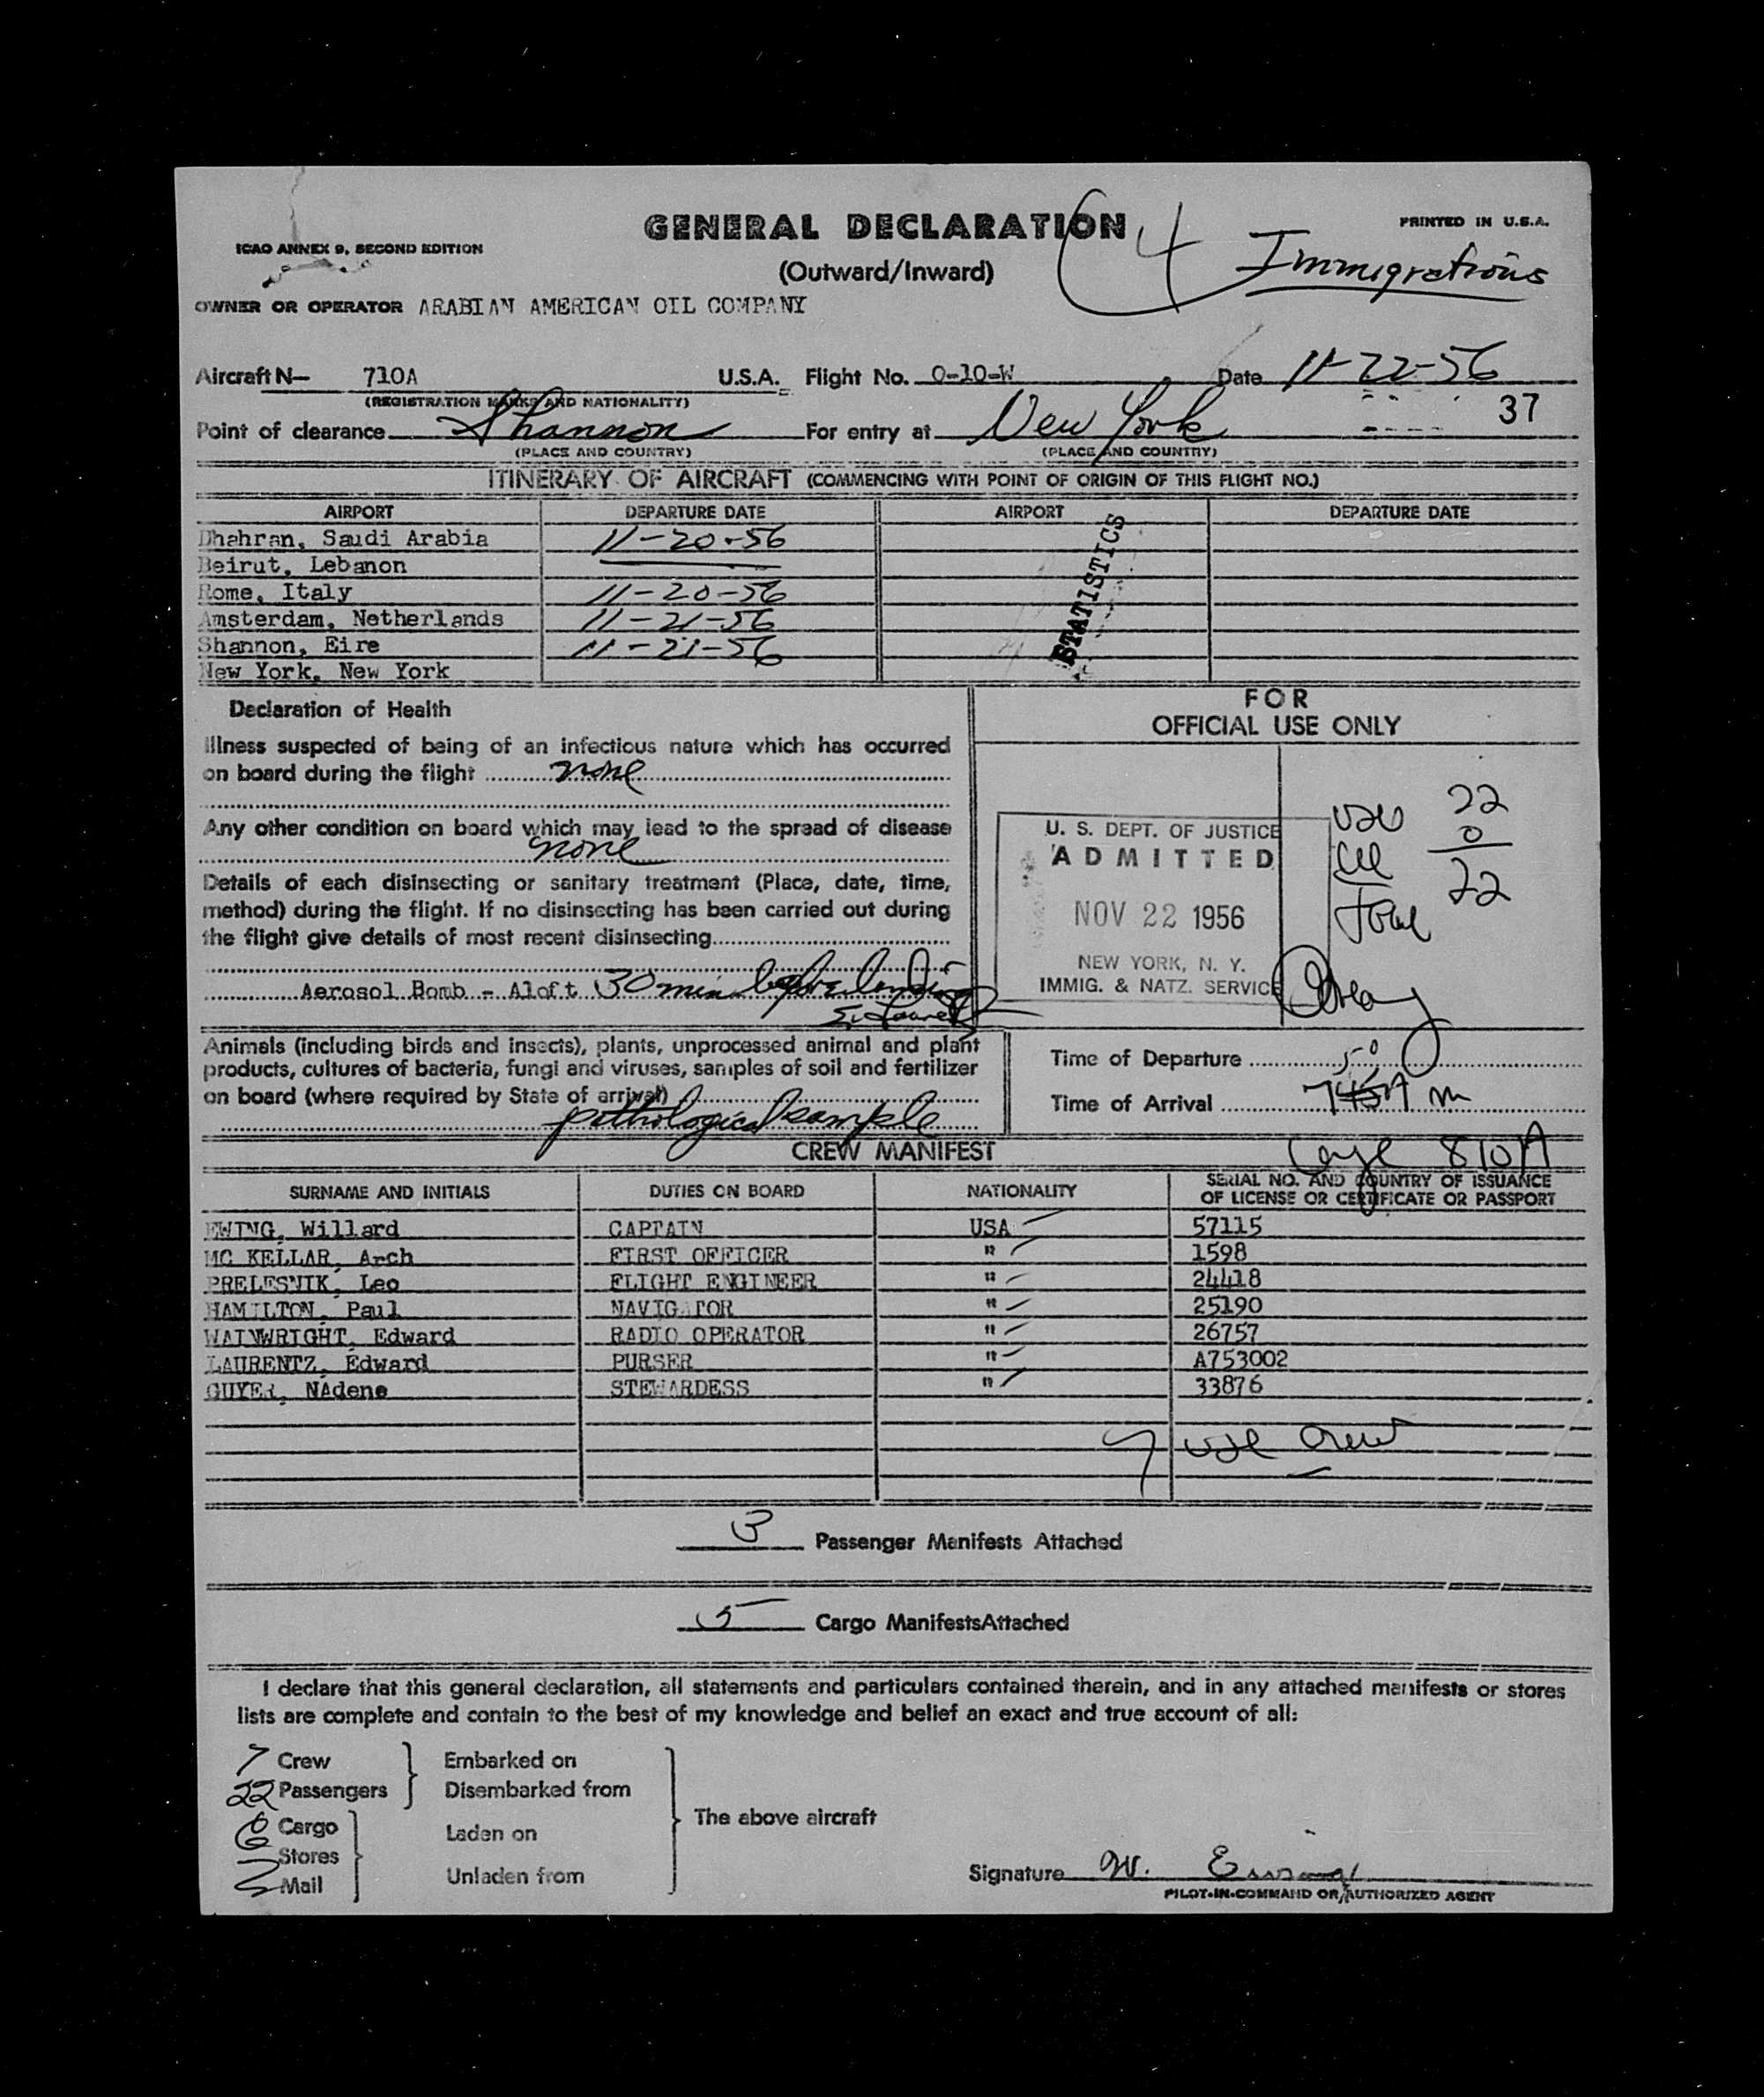 GENERAL DECLARATION
(Outward/Inward)
ICAO ANNEX 9, SECOND EDITION
PRINTED IN U.S.A.
4 Immigrations
OWNER OR OPERATOR ARABIAN AMERICAN OIL COMPANY
Aircraft N— 710A U.S.A. Flight No. 0-10-W Date 11-22-56
(REGISTRATION MARKS AND NATIONALITY)
37
Point of clearance Shannon For entry at New York
(PLACE AND COUNTRY) (PLACE AND COUNTRY)
ITINERARY OF AIRCRAFT (COMMENCING WITH POINT OF ORIGIN OF THIS FLIGHT NO.)
AIRPORT DEPARTURE DATE AIRPORT DEPARTURE DATE
Dhahran, Saudi Arabia 11-20-56
Beirut, Lebanon
Rome, Italy 11-20-56
Amsterdam, Netherlands 11-21-56
Shannon, Eire 11-21-56
New York, New York
STATISTICS
Declaration of Health
Illness suspected of being of an infectious nature which has occurred
on board during the flight none
Any other condition on board which may lead to the spread of disease
none
Details of each disinsecting or sanitary treatment (Place, date, time,
method) during the flight. If no disinsecting has been carried out during
the flight give details of most recent disinsecting
Aerosol Bomb - Aloft 30 min before landing
FOR
OFFICIAL USE ONLY
U. S. DEPT. OF JUSTICE
ADMITTED
NOV 22 1956
NEW YORK, N. Y.
IMMIG. & NATZ. SERVICE
22
0
Total 22
Animals (including birds and insects), plants, unprocessed animal and plant
products, cultures of bacteria, fungi and viruses, samples of soil and fertilizer
on board (where required by State of arrival)
pathological sample
Time of Departure
Time of Arrival
810A
CREW MANIFEST
SURNAME AND INITIALS DUTIES ON BOARD NATIONALITY SERIAL NO. AND COUNTRY OF ISSUANCE OF LICENSE OR CERTIFICATE OR PASSPORT
EWING, Willard CAPTAIN USA 57115
MC KELLAR, Arch FIRST OFFICER " 1598
PRELESNIK, Leo FLIGHT ENGINEER " 24418
HAMILTON, Paul NAVIGATOR " 25190
WAINWRIGHT, Edward RADIO OPERATOR " 26757
LAURENTZ, Edward PURSER " A753002
GUYER, NAdene STEWARDESS " 33876
7 crew
3 Passenger Manifests Attached
5 Cargo ManifestsAttached
I declare that this general declaration, all statements and particulars contained therein, and in any attached manifests or stores
lists are complete and contain to the best of my knowledge and belief an exact and true account of all:
7 Crew Embarked on
22 Passengers Disembarked from
Cargo Laden on
Stores
Mail Unladen from
The above aircraft
Signature W. Ewing
PILOT-IN-COMMAND OR AUTHORIZED AGENT